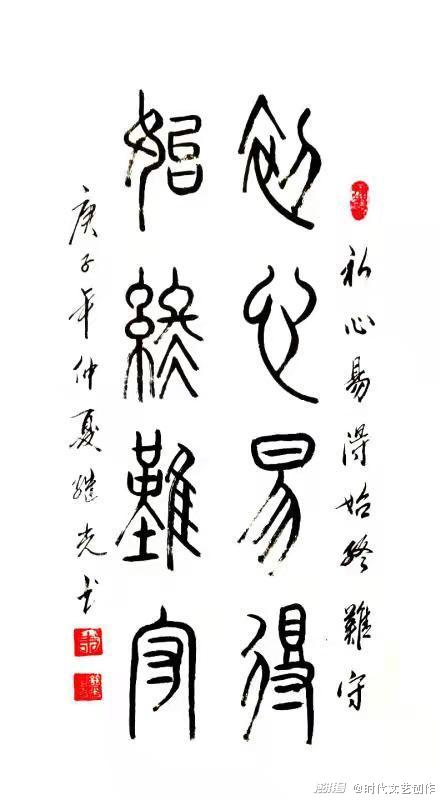 初心易得始終難守
初心易得
始終難守
庚子年仲夏继光书
@时代文艺创作